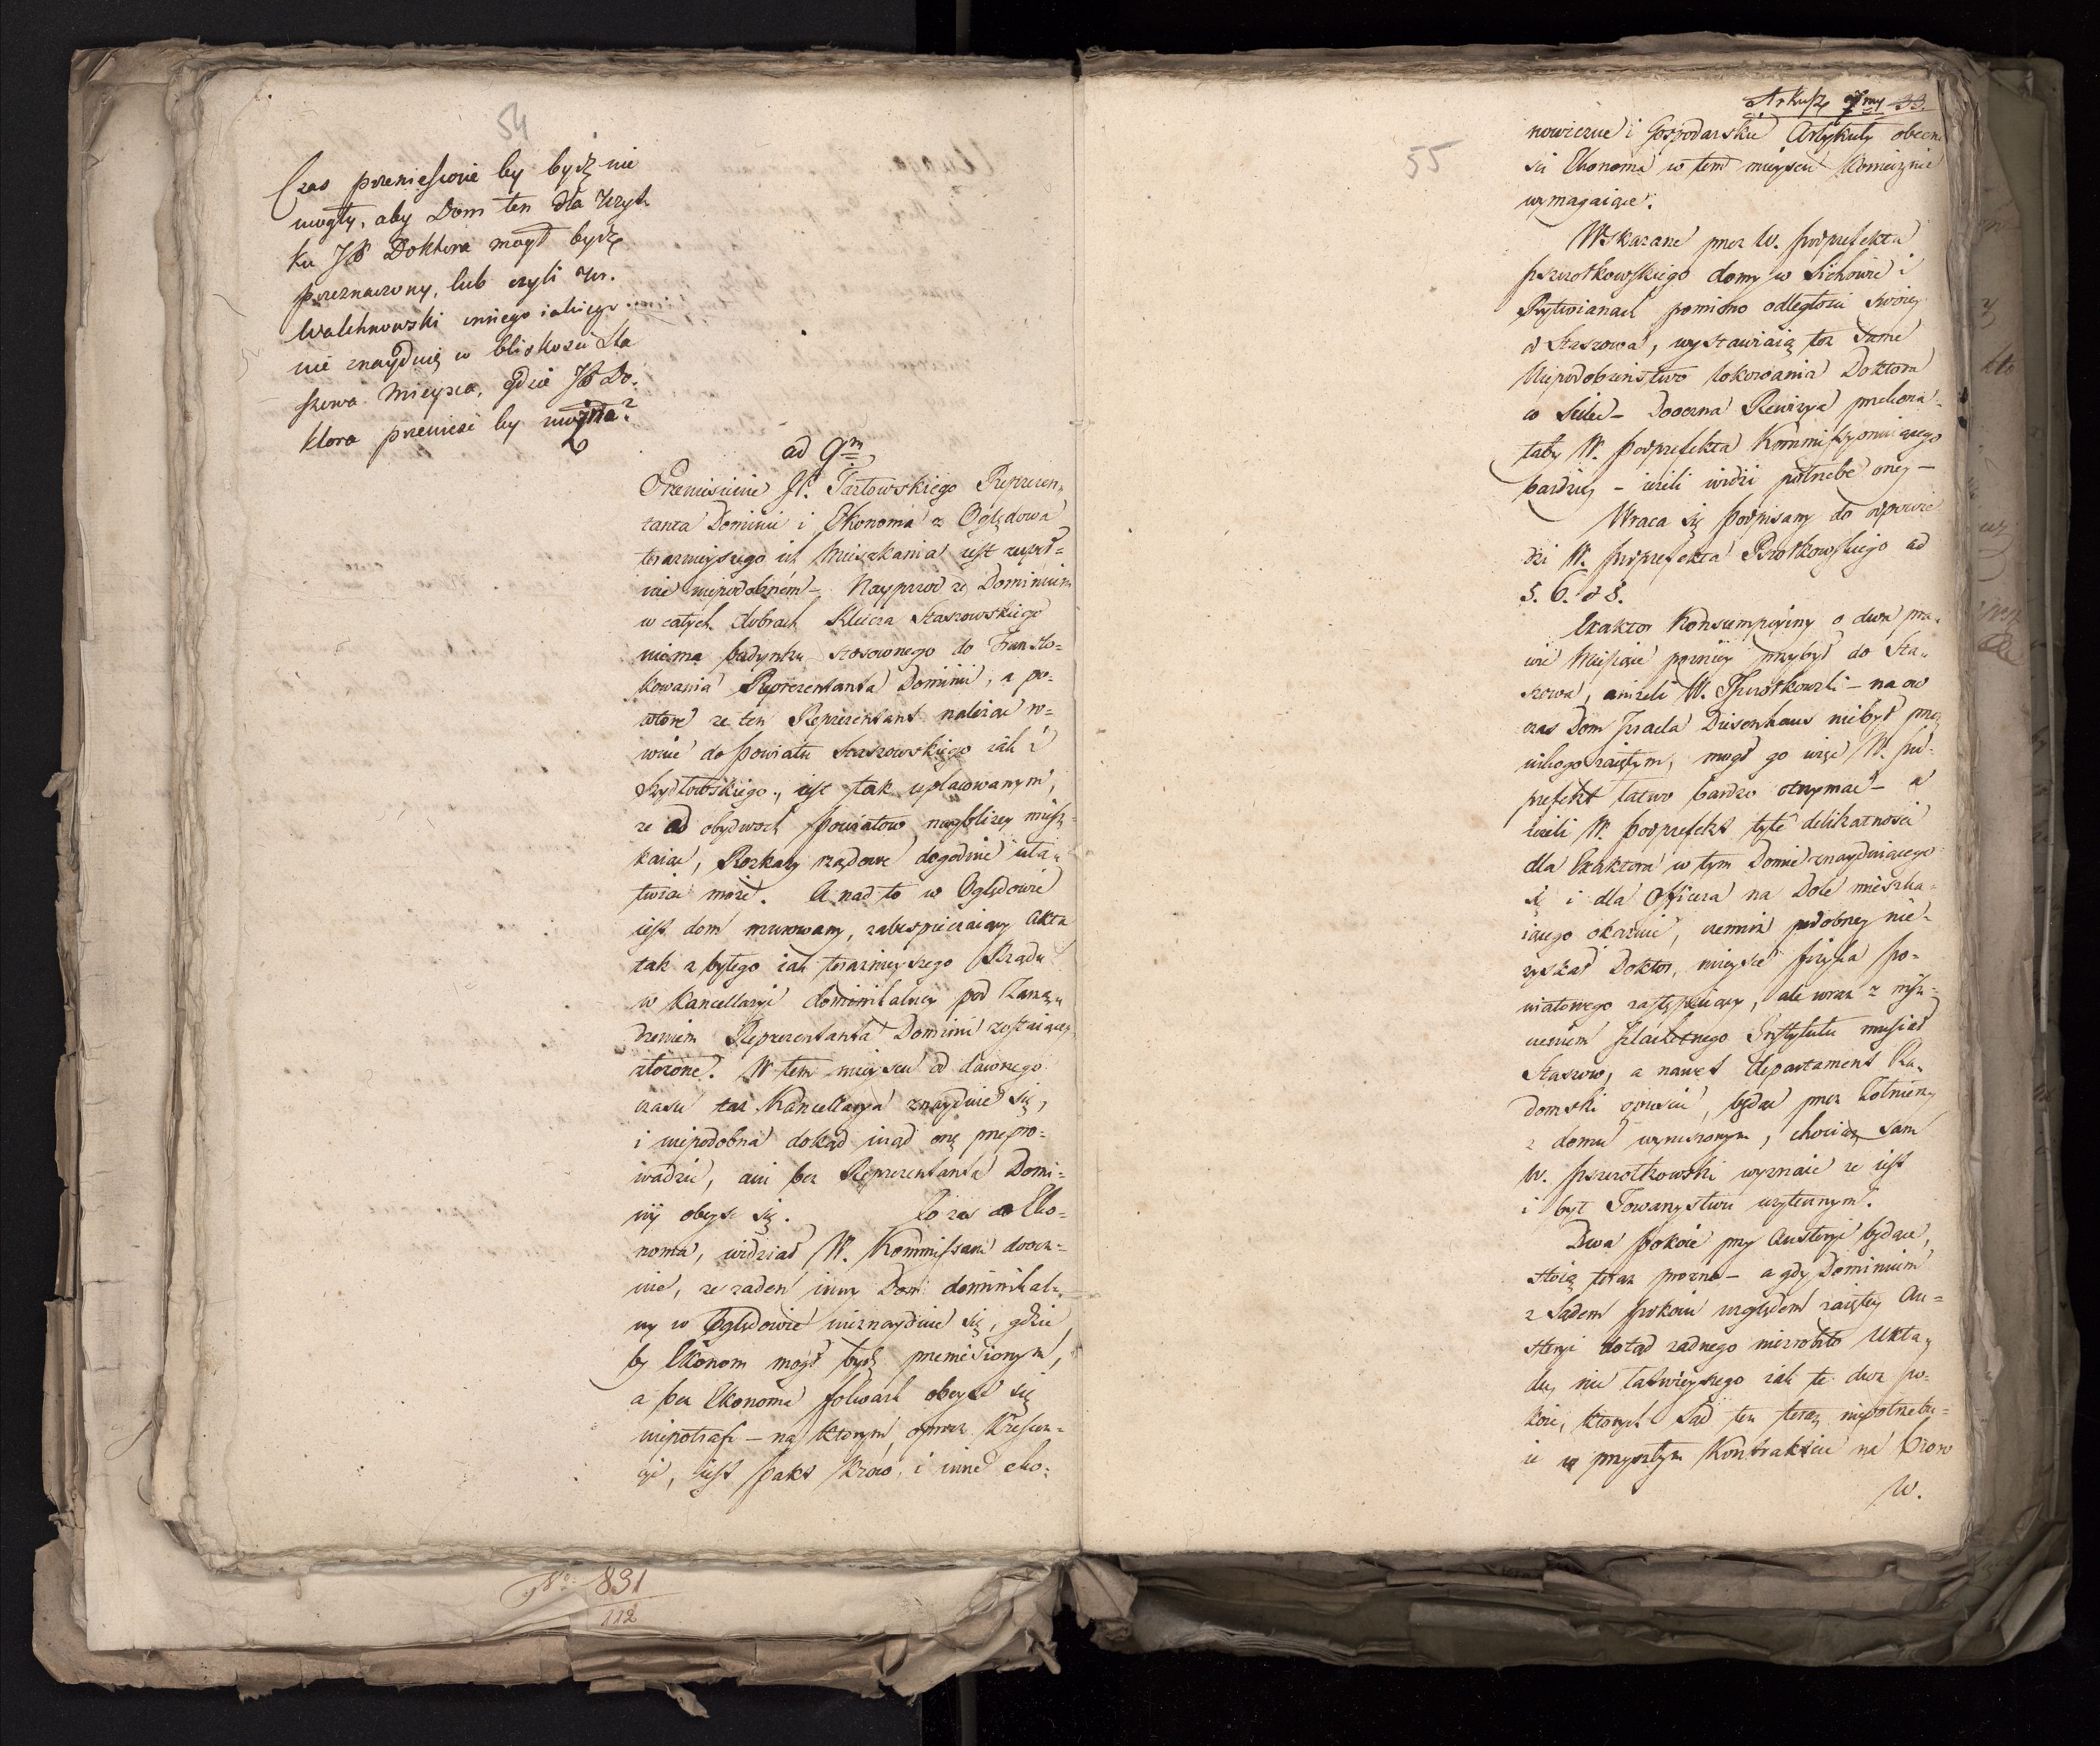 54
Czas przeniesione by bydź nie
mogły, aby Dom ten dla Użyt
ku JP Doktora mógł bydź
przeznaczony, lub czyli Ur.
Walchnowski innego iakiego
nie znayduie w bliskości Sta
szowa Mieysca, gdzie JP Do-
ktora przenieść by można?
ad 9m
Przeniesienie JP. Tarłowskiego Reprezen-
tanta Dominii i Ekonoma z Oględowa
teraznieyszego ich Mieszkania iest zupeł-
nie niepodobném – Nayprzod że Dominium
w całych dobrach Klucza Staszowskiego
niema budynku stosownego do Translo-
kowania Reprezentanta Dominii, a po-
wtore że ten Reprezentant należąc ró-
wnie do Powiatu Staszowskiego iak i
Szydłowskiego, iest tak uplacowanym,
że od obydwoch Powiatow naybliżey miesz-
kaiąc, Rozkazy rządowe dogodnie uła-
twiać może. A nad to w Oględowie
iest dom murowany, zabespieczaiący Akta
tak z byłego iak teraznieyszego Rządu
w Kancellaryi dominikalney pod Zarzą-
dzeniem Reprezentanta Dominii zostaiącey
złożone. W tem mieyscu od dawnego
czasu taż Kancellarya znayduie się,
i niepodobna dokąd inąd onę przepro-
wadzić, ani bez Reprezentanta Domi-
nij obeyść się. Co zaś do Eko-
noma, widział W. Kommissarz docze-
nie, że żaden inny Dom dominikal-
ny w Oględowie nieznayduie się, gdzie
by Ekonom mógł bydź przeniesionym,
a bez Ekonoma folwark obeyść się
niepotrafi – na ktorym oprocz Krescen-
cyi, iest Pakt Krow, i inne eko-
831
112
Arkusz 9my 33.
55
nomiczne i Gospodarskie Artykuły obecno
ści Ekonoma w tem mieyscu koniecznie
wymagaiące.
Wskazane przez W. Podprefekta
Pszczołkowskiego domy w Sichowie i
Rytwianach pomimo odległości swoiey
od Staszowa, wystawiaią toż samo
Niepodobieństwo lokowania Doktora
w Siebie – Doczesna Rewizya przekona-
łaby W. Podprefekta Kommissyonuiącego
bardziey – ieżeli widzi potrzebę oney –
Wraca się Podpisany do odpowie
dzi W. Podprefekta Pszczołkowskiego ad
§. 6. et 8.
Exaktor Konsumpcyiny o dwa pra-
wie Miesiące pozniey przybył do Sta-
szowa, aniżeli W. Pszczołkowski – na ow
czas Dom Izraela Diesenhaus niebył przez
nikogo zaiętym, mógł go więc W. Pod-
prefekt łatwo bardzo otrzymać – a
ieżeli W. Podprefekt tyle delikatności
dla Exaktora w tym Domie znayduiącego
się i dla Officera na Dole mieszka-
iącego okazuie, czemuż podobney nie-
zyskał Doktor, mieysce fizyka Po-
wiatowego zastępuiący, ale wraz z niszcze-
niem szlachetnego Instytutu musiał
Staszow, a nawet Departament Ra-
domski opuścić, będąc przez Żołnierzy
z domu wyruszonym, chociaż sam
W. Pszczołkowski wyznaie że iest
i był Towarzystwu użytecznym.
Dwa Pokoie przy Austeryi będące,
stoią teraz prożno – a gdy Dominium
z Sądem Pokoiu względem zaiętey Au-
steryi dotąd żadnego niezrobiło Ukła-
du, nic łatwieyszego iak te dwa po-
koie, ktorych Sąd ten teraz niepotrzebu-
ie w przyszłym Kontrakcie na Pron
W.